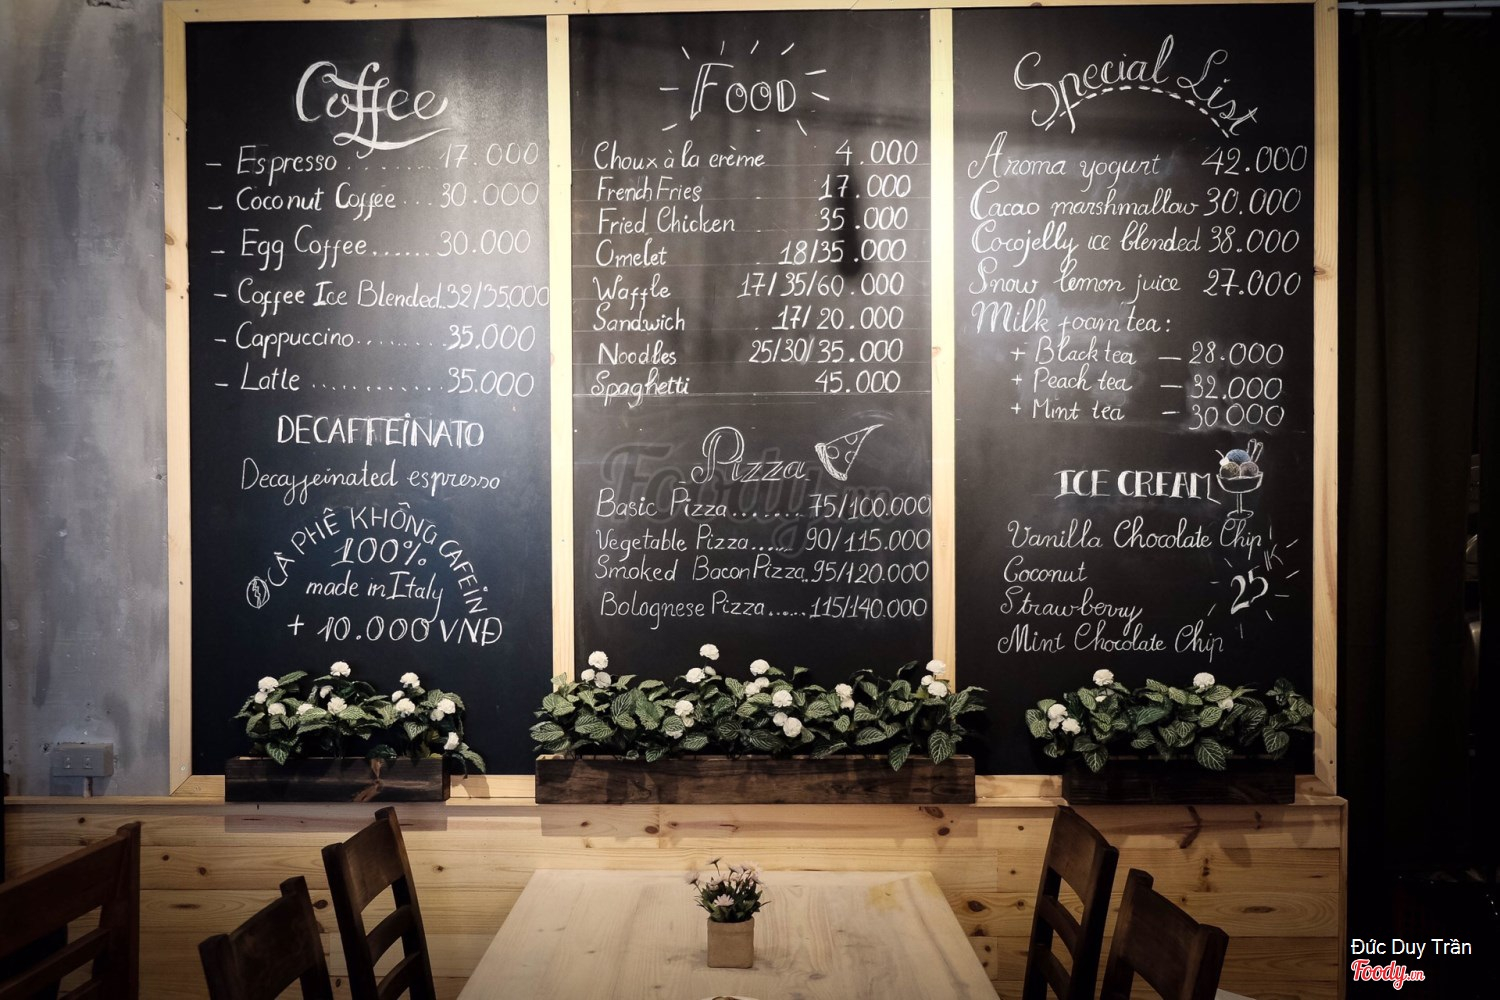 Coffee
- Espresso ......... 17.000
- Coconut Coffee ... 30.000
- Egg Coffee...... 30.000
- Coffee Ice Blended. 32/35.000
- Cappuccino......... 35.000
- Latle ............. 35.000
DECAFFEiNATO
Decaffeinated espresso
CÀ PHÊ KHÔNG CAFEIN
100%
made in Italy
+ 10.000 VNĐ
FOOD
Choux à la crème 4.000
French Fries 17.000
Fried Chicken 35.000
Omelet 18/35.000
Waffle 17/35/60.000
Sandwich 17/20.000
Noodles 25/30/35.000
Spaghetti 45.000
Pizza
Basic Pizza........ 75/100.000
Vegetable Pizza..... 90/115.000
Smoked Bacon Pizza. 95/120.000
Bolognese Pizza...... 115/140.000
Special List
Aroma yogurt 42.000
Cacao marshmallow 30.000
Cocojelly ice blended 38.000
Snow lemon juice 27.000
Milk foam tea:
+ Black tea - 28.000
+ Peach tea - 32.000
+ Mint tea - 30.000
ICE CREAM
Vanilla Chocolate Chip
Coconut
Strawberry
Mint Chocolate Chip
25K
Foody.vn
Đức Duy Trần
Foody.vn